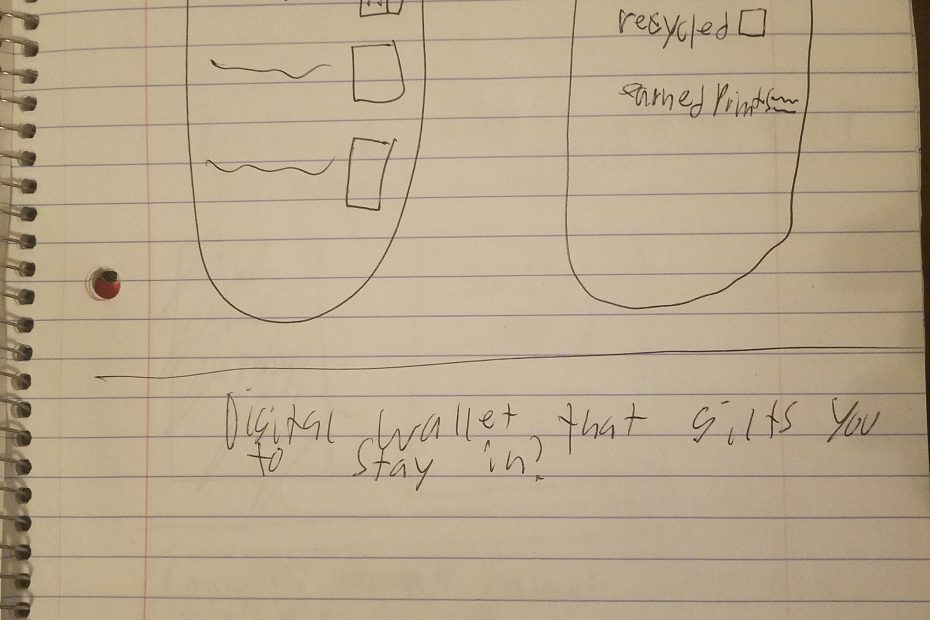 recycled
earned Prints
Digital wallet that gilts you
to stay in?